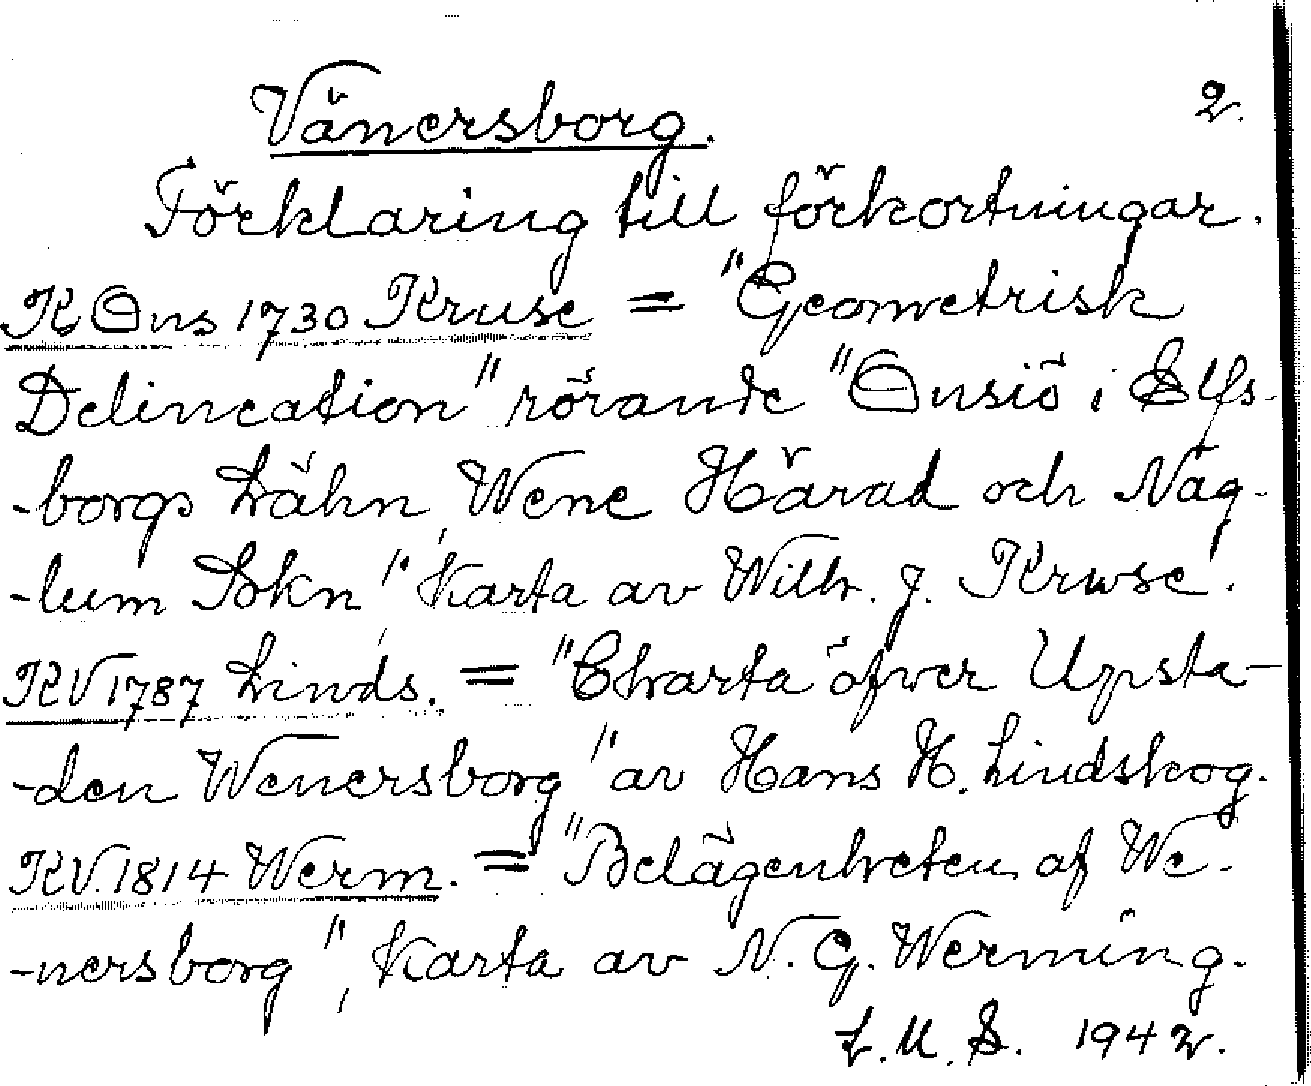 Vänersborg. 2.
Förklaring till förkortningar.
K Ons 1730 Kruse = "Geometrisk
Delineation" rörande "Onsiö i Elfs-
-borgs Lähn, Wene Härad och Nag-
-lum Sokn", Karta av Wilh. J. Kruse.
KV 1787 Linds. = "Charta öfver Upsta-
-den Wenersborg" av Hans H. Lindskog.
KV. 1814 Werm. = "Belägenheten af We-
-nersborg", Karta av N. G. Werming.
L. M. S. 1942.